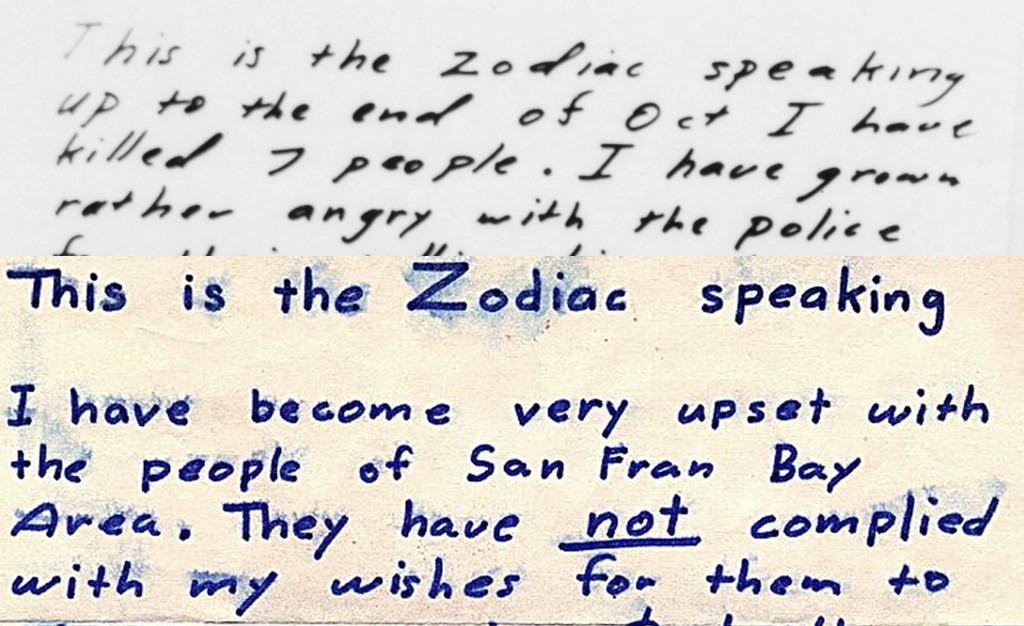 This is the Zodiac speaking
up to the end of Oct I have
killed 7 people. I have grown
rather angry with the police
This is the Zodiac speaking
I have become very upset with
the people of San Fran Bay
Area. They have not complied
with my wishes for them to